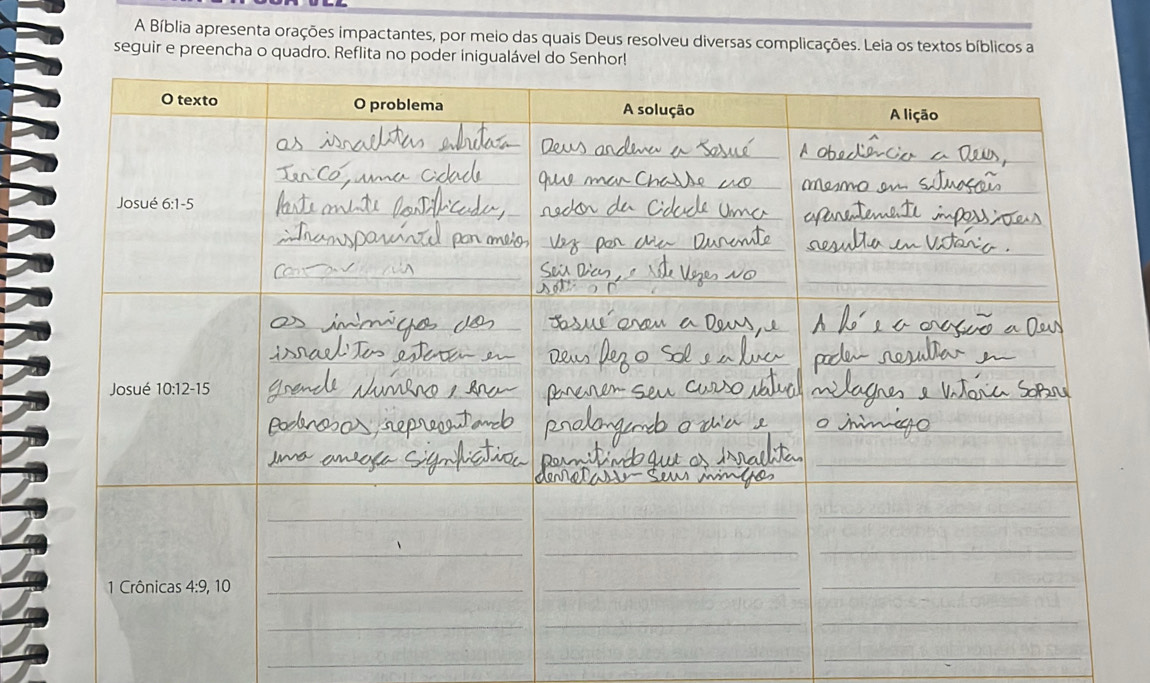 A Bíblia apresenta orações impactantes, por meio das quais Deus resolveu diversas complicações. Leia os textos bíblicos a
seguir e preencha o quadro. Reflita no poder inigualável do Senhor!
O texto
O problema
A solução
A lição
Josué 6:1-5
os israelitas
Jericó, uma cidade
fortemente fortificada,
por meios
Deus ordena a Josué
que marchasse ao
redor da cidade uma
vez por dia Durante
Seis Dias, e sete vezes no
A obediência a Deus,
mesmo em situações
aparentemente impossíveis
resulta em vitória.
Josué 10:12-15
os inimigos dos
israelitas estavam em
grande número, eram
poderosos, representando
uma ameaça significativa
Josué orou a Deus, e
Deus fez o Sol e a lua
pararem seu curso natural
prolongando o dia e
permitindo que os israelitas
seus inimigos
A fé e a oração a Deus
podem resultar em
milagres e vitória sobre
o inimigo
1 Crônicas 4:9, 10